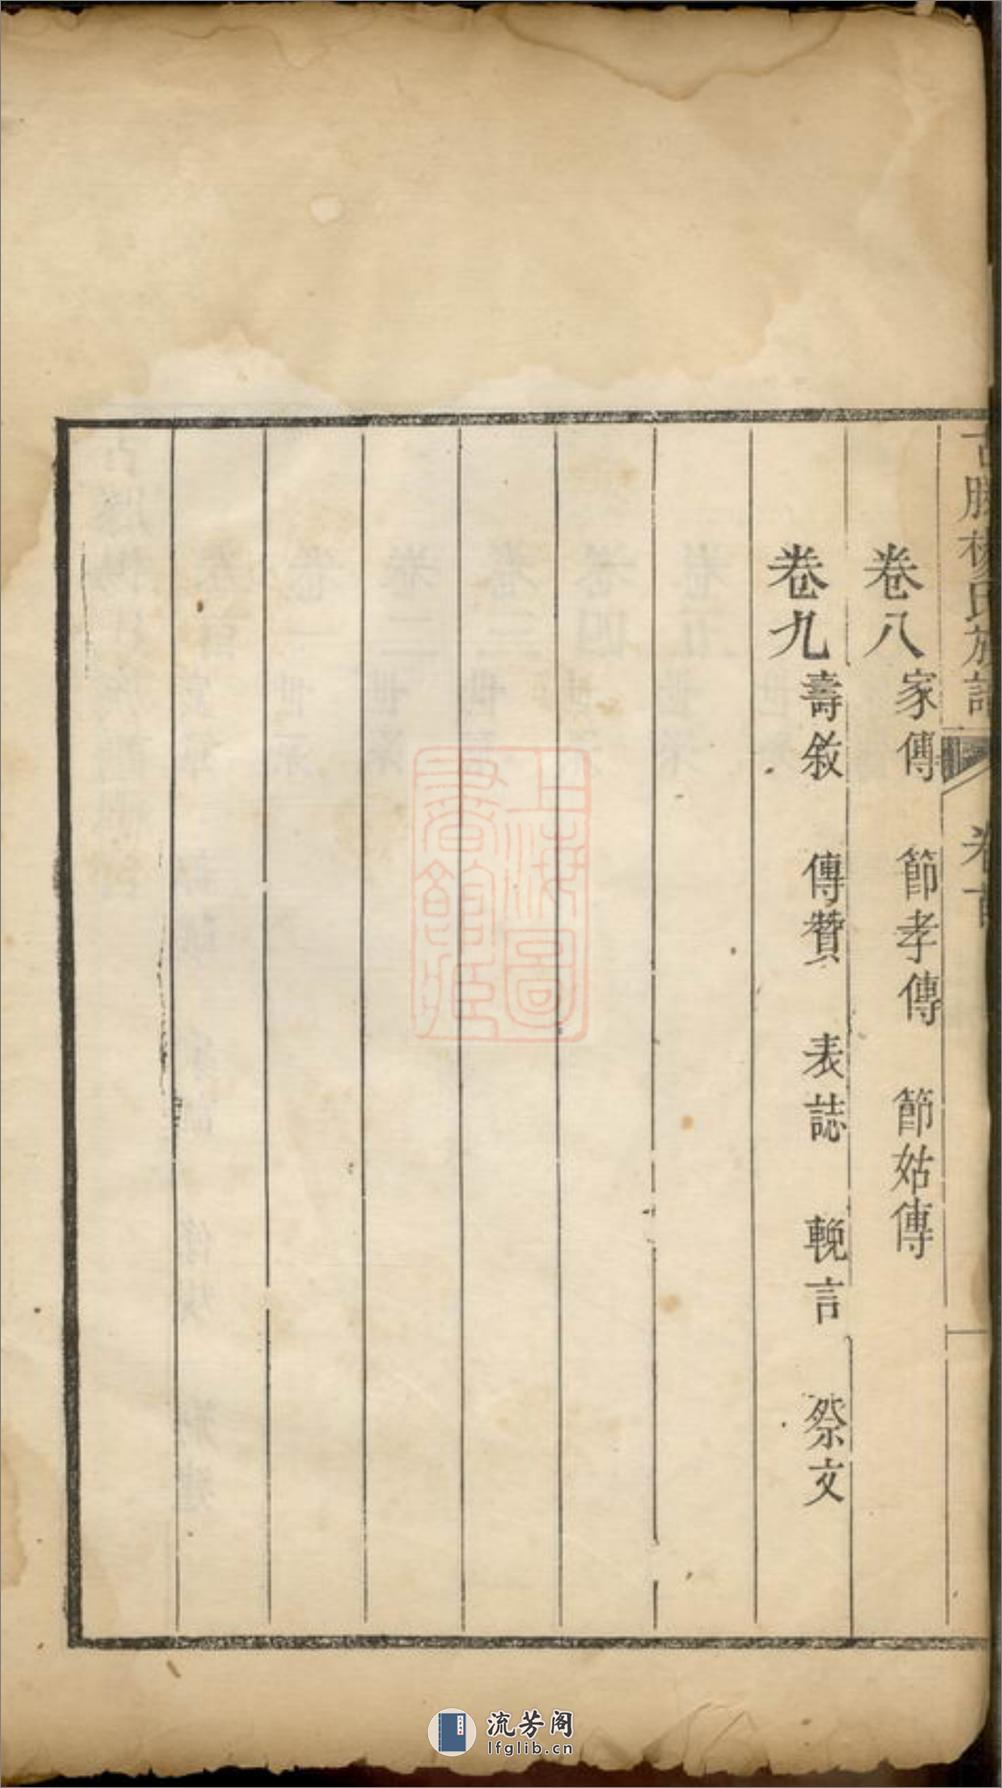 古滕楊氏族譜 卷首
卷八 家傳 節孝傳 節姑傳
卷九 壽敘 傳贊 表誌 輓言 祭文
上海圖書館藏
流芳阁
lfglib.cn